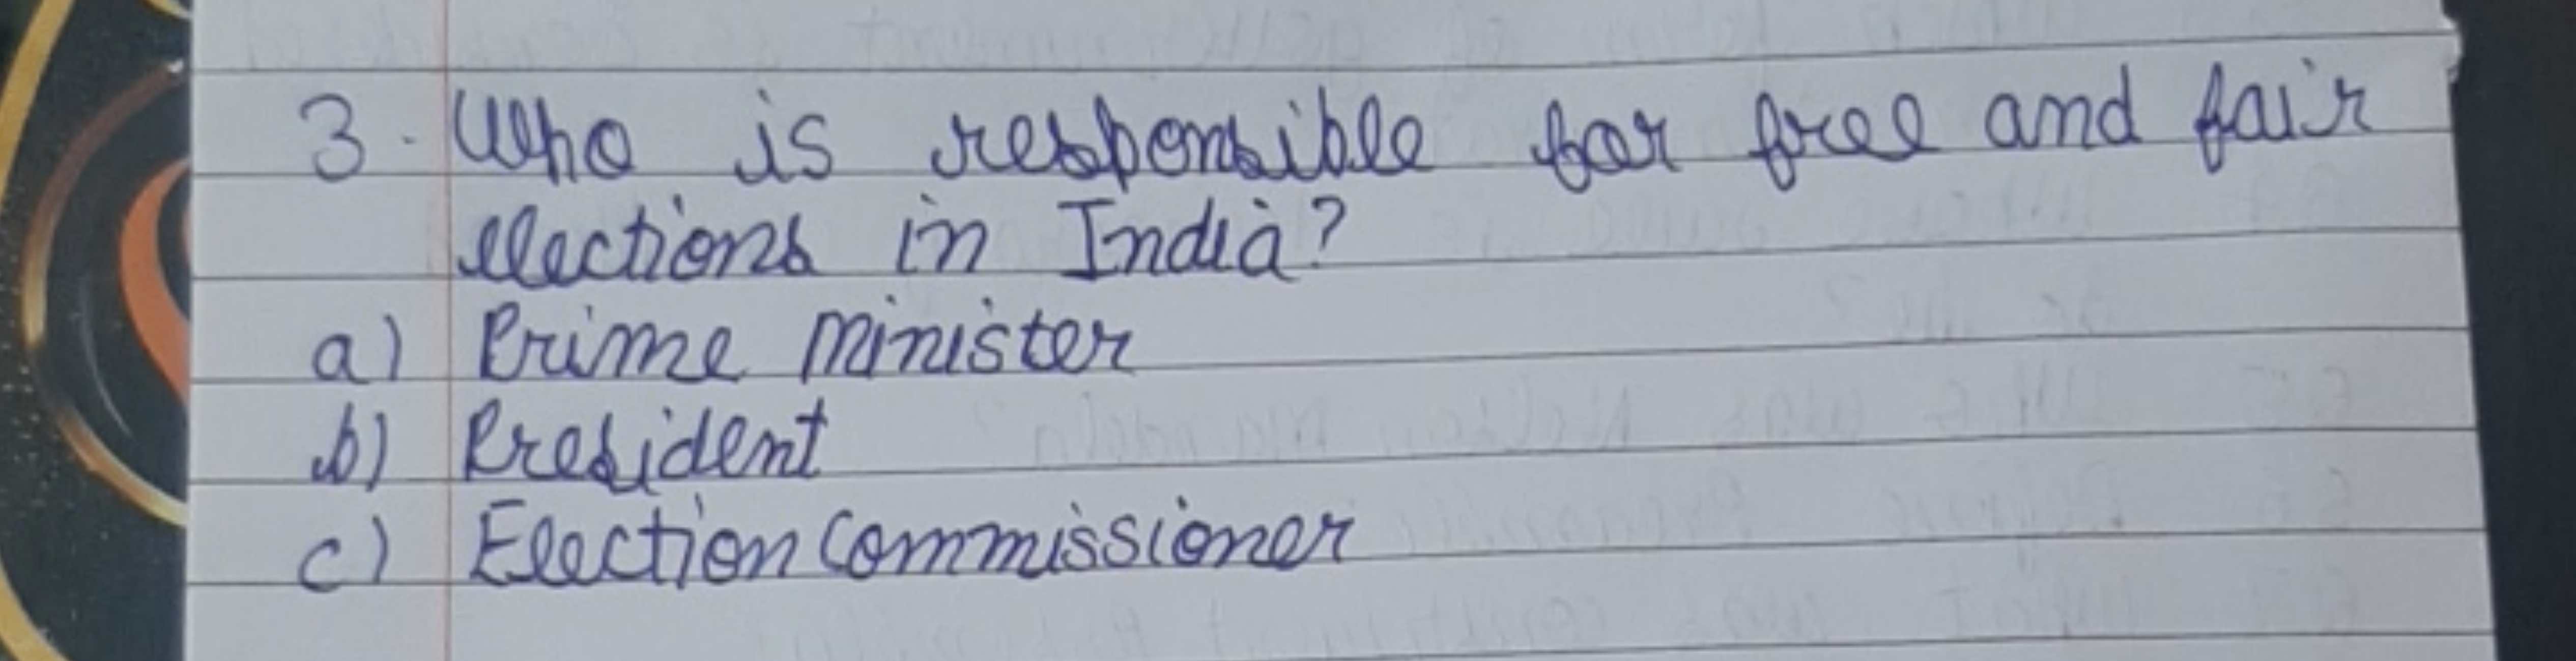 3. Who is responsible for free and fair
elections in India?
a) Prime minister
b) President
c) Election Commissioner